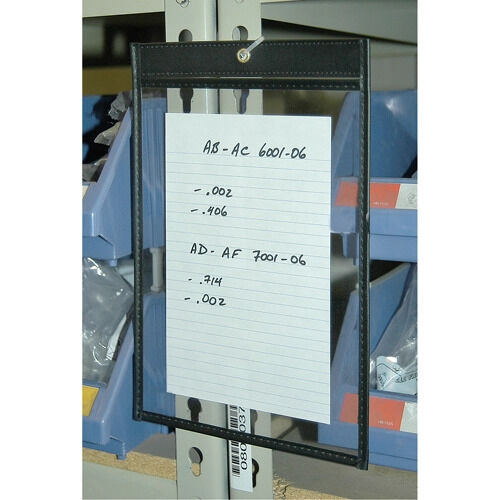 AB-AC 6001-06
-.002
-.406
AD-AF 7001-06
-.714
-.002